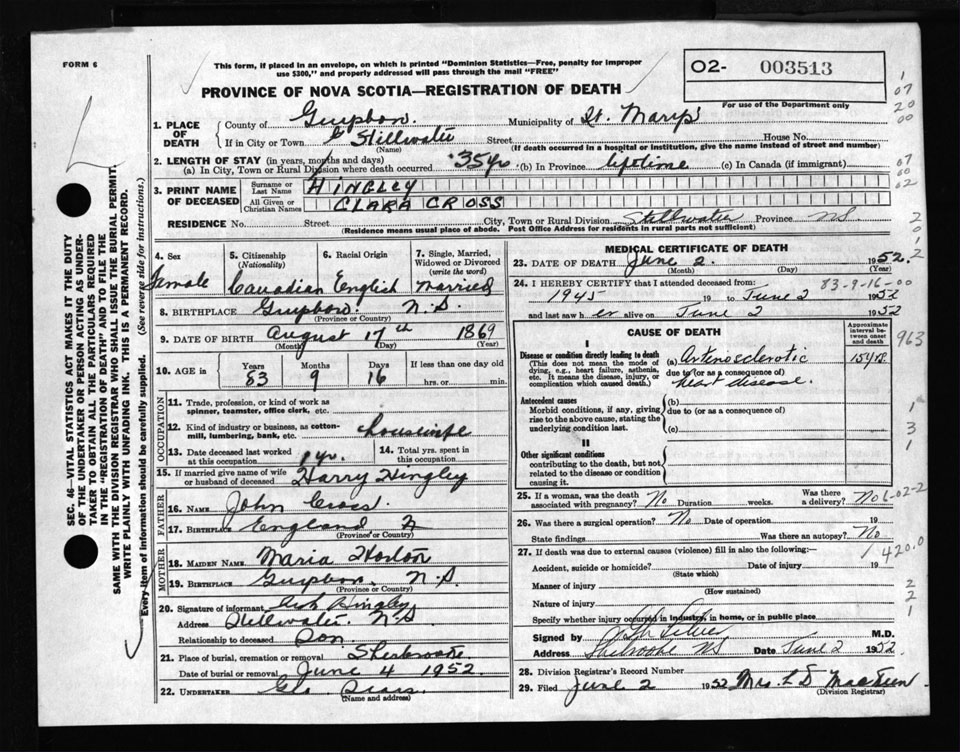 FORM 6
This form, if placed in an envelope, on which is printed "Dominion Statistics—Free, penalty for improper
use $300," and properly addressed will pass through the mail "FREE"
O2- 003513
For use of the Department only
PROVINCE OF NOVA SCOTIA—REGISTRATION OF DEATH
1. PLACE OF DEATH
County of Municipality of St. Marys
If in City or Town Stillwater Street House No.
(Name) (If death occurred in a hospital or institution, give the name instead of street and number)
2. LENGTH OF STAY (in years, months and days)
(a) In City, Town or Rural Division where death occurred (b) In Province lifetime (c) In Canada (if immigrant)
3. PRINT NAME OF DECEASED
Surname or Last Name HINGLEY
All Given or Christian Names CLARA CROSS
RESIDENCE No. Street City, Town or Rural Division Stillwater Province NS
(Residence means usual place of abode. Post Office Address for residents in rural parts not sufficient)
4. Sex Female
5. Citizenship (Nationality) Canadian
6. Racial Origin English
7. Single, Married, Widowed or Divorced (write the word) Married
8. BIRTHPLACE N.S.
(Province or Country)
9. DATE OF BIRTH August 17th 1869
(Month) (Day) (Year)
10. AGE in Years Months Days If less than one day
83 9 16 hrs. or min.
OCCUPATION
11. Trade, profession, or kind of work as spinner, teamster, office clerk, etc.
12. Kind of industry or business, as cotton-mill, lumbering, bank, etc. housewife
13. Date deceased last worked at this occupation 1 yr.
14. Total yrs. spent in this occupation
15. If married give name of wife or husband of deceased Harry Hingley
FATHER
16. NAME John Cross
17. BIRTHPLACE England
(Province or Country)
MOTHER
18. MAIDEN NAME Maria Horton
19. BIRTHPLACE N.S.
(Province or Country)
20. Signature of informant Hingley
Address Stillwater N.S
Relationship to deceased Son.
21. Place of burial, cremation or removal Sherbrooke
Date of burial or removal June 4 1952
22. UNDERTAKER Geo Sears
(Name and Address)
MEDICAL CERTIFICATE OF DEATH
23. DATE OF DEATH June 2. 1952.
(Month) (Day) (Year)
24. I HEREBY CERTIFY that I attended deceased from: 83-9-16-00
1945 19 to June 2 1952
and last saw her alive on June 2 1952
CAUSE OF DEATH
Approximate interval between onset and death
I
Disease or condition directly leading to death
(This does not mean the mode of dying, e.g., heart failure, asthenia, etc. It means the disease, injury, or complication which caused death.)
(a) Arteriosclerotic 15 yrs.
due to (or as a consequence of)
heart disease.
Antecedent causes
Morbid conditions, if any, giving rise to the above cause, stating the underlying condition last.
(b)
due to (or as a consequence of)
(c)
II
Other significant conditions
contributing to the death, but not related to the disease or condition causing it.
25. If a woman, was the death associated with pregnancy? No Duration weeks. Was there a delivery? No
26. Was there a surgical operation? No Date of operation 19
State findings Was there an autopsy? No
27. If death was due to external causes (violence) fill in also the following:—
Accident, suicide or homicide? Date of injury 19
(State which)
Manner of injury
(How sustained)
Nature of injury
Specify whether injury occurred in industry, in home, or in public place
Signed by M.D.
Address Sherbrooke NS Date June 2 1952.
28. Division Registrar's Record Number
29. Filed June 2 1952 Mrs. L D
(Division Registrar)
963
420.0
SEC. 46—VITAL STATISTICS ACT MAKES IT THE DUTY
OF THE UNDERTAKER OR PERSON ACTING AS UNDER-
TAKER TO OBTAIN ALL THE PARTICULARS REQUIRED
IN THE "REGISTRATION OF DEATH" AND TO FILE THE
SAME WITH THE DIVISION REGISTRAR WHO SHALL ISSUE THE BURIAL PERMIT.
WRITE PLAINLY WITH UNFADING INK. THIS IS A PERMANENT RECORD.
Every item of information should be carefully supplied. (See reverse side for instructions.)